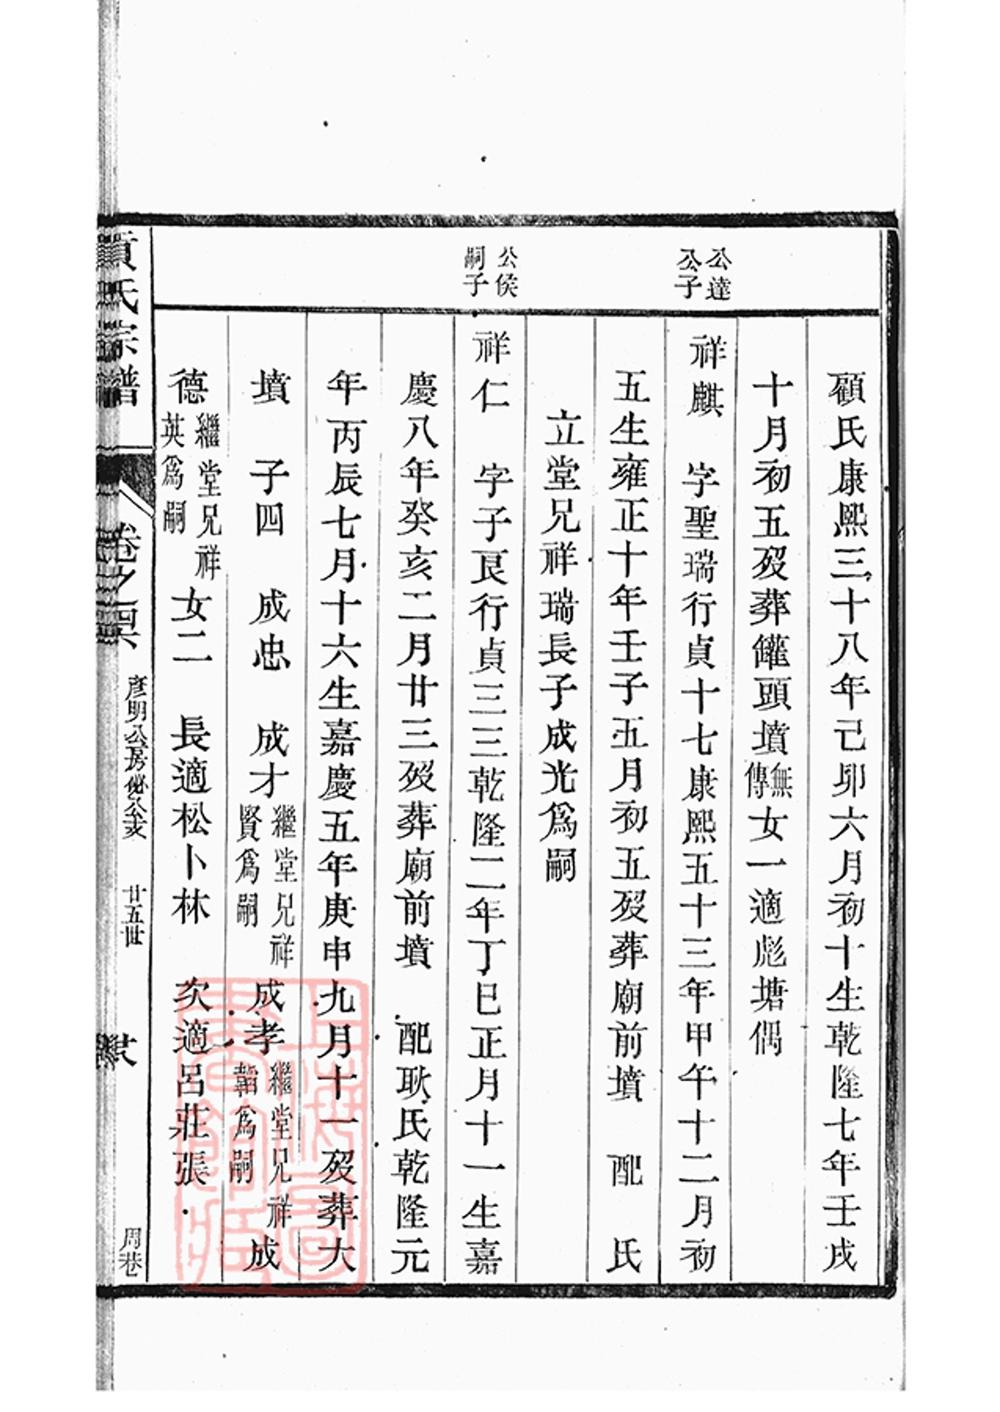 公達
公子
公侯
嗣子
顧氏康熙三十八年己卯六月初十生乾隆七年壬戌
十月初五歿葬罐頭墳無傳女一適彪塘偶
祥麒　字聖瑞行貞十七康熙五十三年甲午十二月初
五生雍正十年壬子五月初五歿葬廟前墳　配　氏
立堂兄祥瑞長子成光爲嗣
祥仁　字子艮行貞三三乾隆二年丁巳正月十一生嘉
慶八年癸亥二月廿三歿葬廟前墳　配耿氏乾隆元
年丙辰七月十六生嘉慶五年庚申九月十一歿葬大
墳　子四　成忠　成才繼堂兄祥賢爲嗣　成孝繼堂兄祥韜爲嗣　成
德繼堂兄祥英爲嗣　女二　長適松卜林　次適呂莊張
氏宗譜
卷之
彥明公房
廿五世
周巷